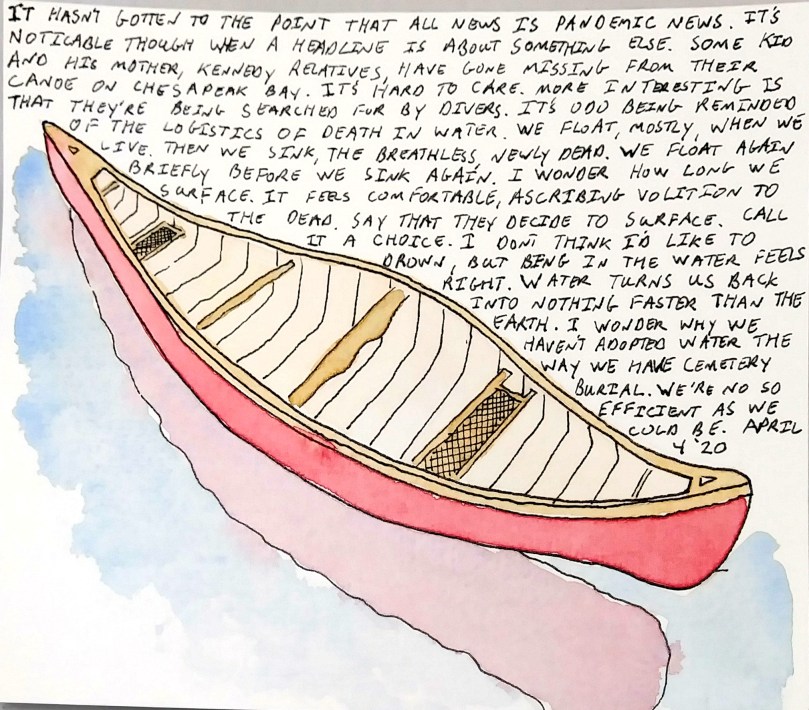 IT HASN'T GOTTEN TO THE POINT THAT ALL NEWS IS PANDEMIC NEWS. IT'S
NOTICABLE THOUGH WHEN A HEADLINE IS ABOUT SOMETHING ELSE. SOME KID
AND HIS MOTHER, KENNEDY RELATIVES, HAVE GONE MISSING FROM THEIR
CANOE ON CHESAPEAK BAY. IT'S HARD TO CARE. MORE INTERESTING IS
THAT THEY'RE BEING SEARCHED FOR BY DIVERS. IT'S ODD BEING REMINDED
OF THE LOGISTICS OF DEATH IN WATER. WE FLOAT, MOSTLY, WHEN WE
LIVE. THEN WE SINK, THE BREATHLESS, NEWLY DEAD. WE FLOAT AGAIN
BRIEFLY BEFORE WE SINK AGAIN. I WONDER HOW LONG WE
SURFACE. IT FEELS COMFORTABLE, ASCRIBING VOLITION TO
THE DEAD. SAY THAT THEY DECIDE TO SURFACE. CALL
IT A CHOICE. I DON'T THINK I'D LIKE TO
DROWN, BUT BEING IN THE WATER FEELS
RIGHT. WATER TURNS US BACK
INTO NOTHING FASTER THAN THE
EARTH. I WONDER WHY WE
HAVEN'T ADOPTED WATER THE
WAY WE HAVE CEMETERY
BURIAL. WE'RE NO SO
EFFICIENT AS WE
COULD BE. APRIL
4 '20